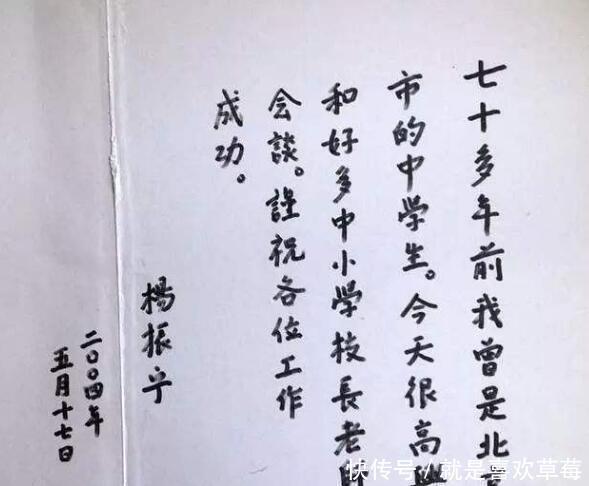 七十多年前我曾是北
市的中學生。今天很高
和好多中小學校長老
会談。謹祝各位工作
成功。
楊振宁
二〇〇四年
五月十七日
快传号/就是喜欢草莓